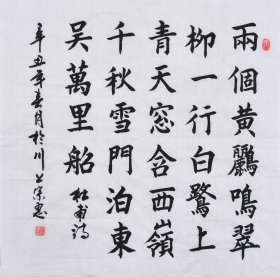 兩個黃鸝鳴翠
柳一行白鷺上
青天窓含西嶺
千秋雪門泊東
吴萬里船
杜甫詩
辛丑年春月於川